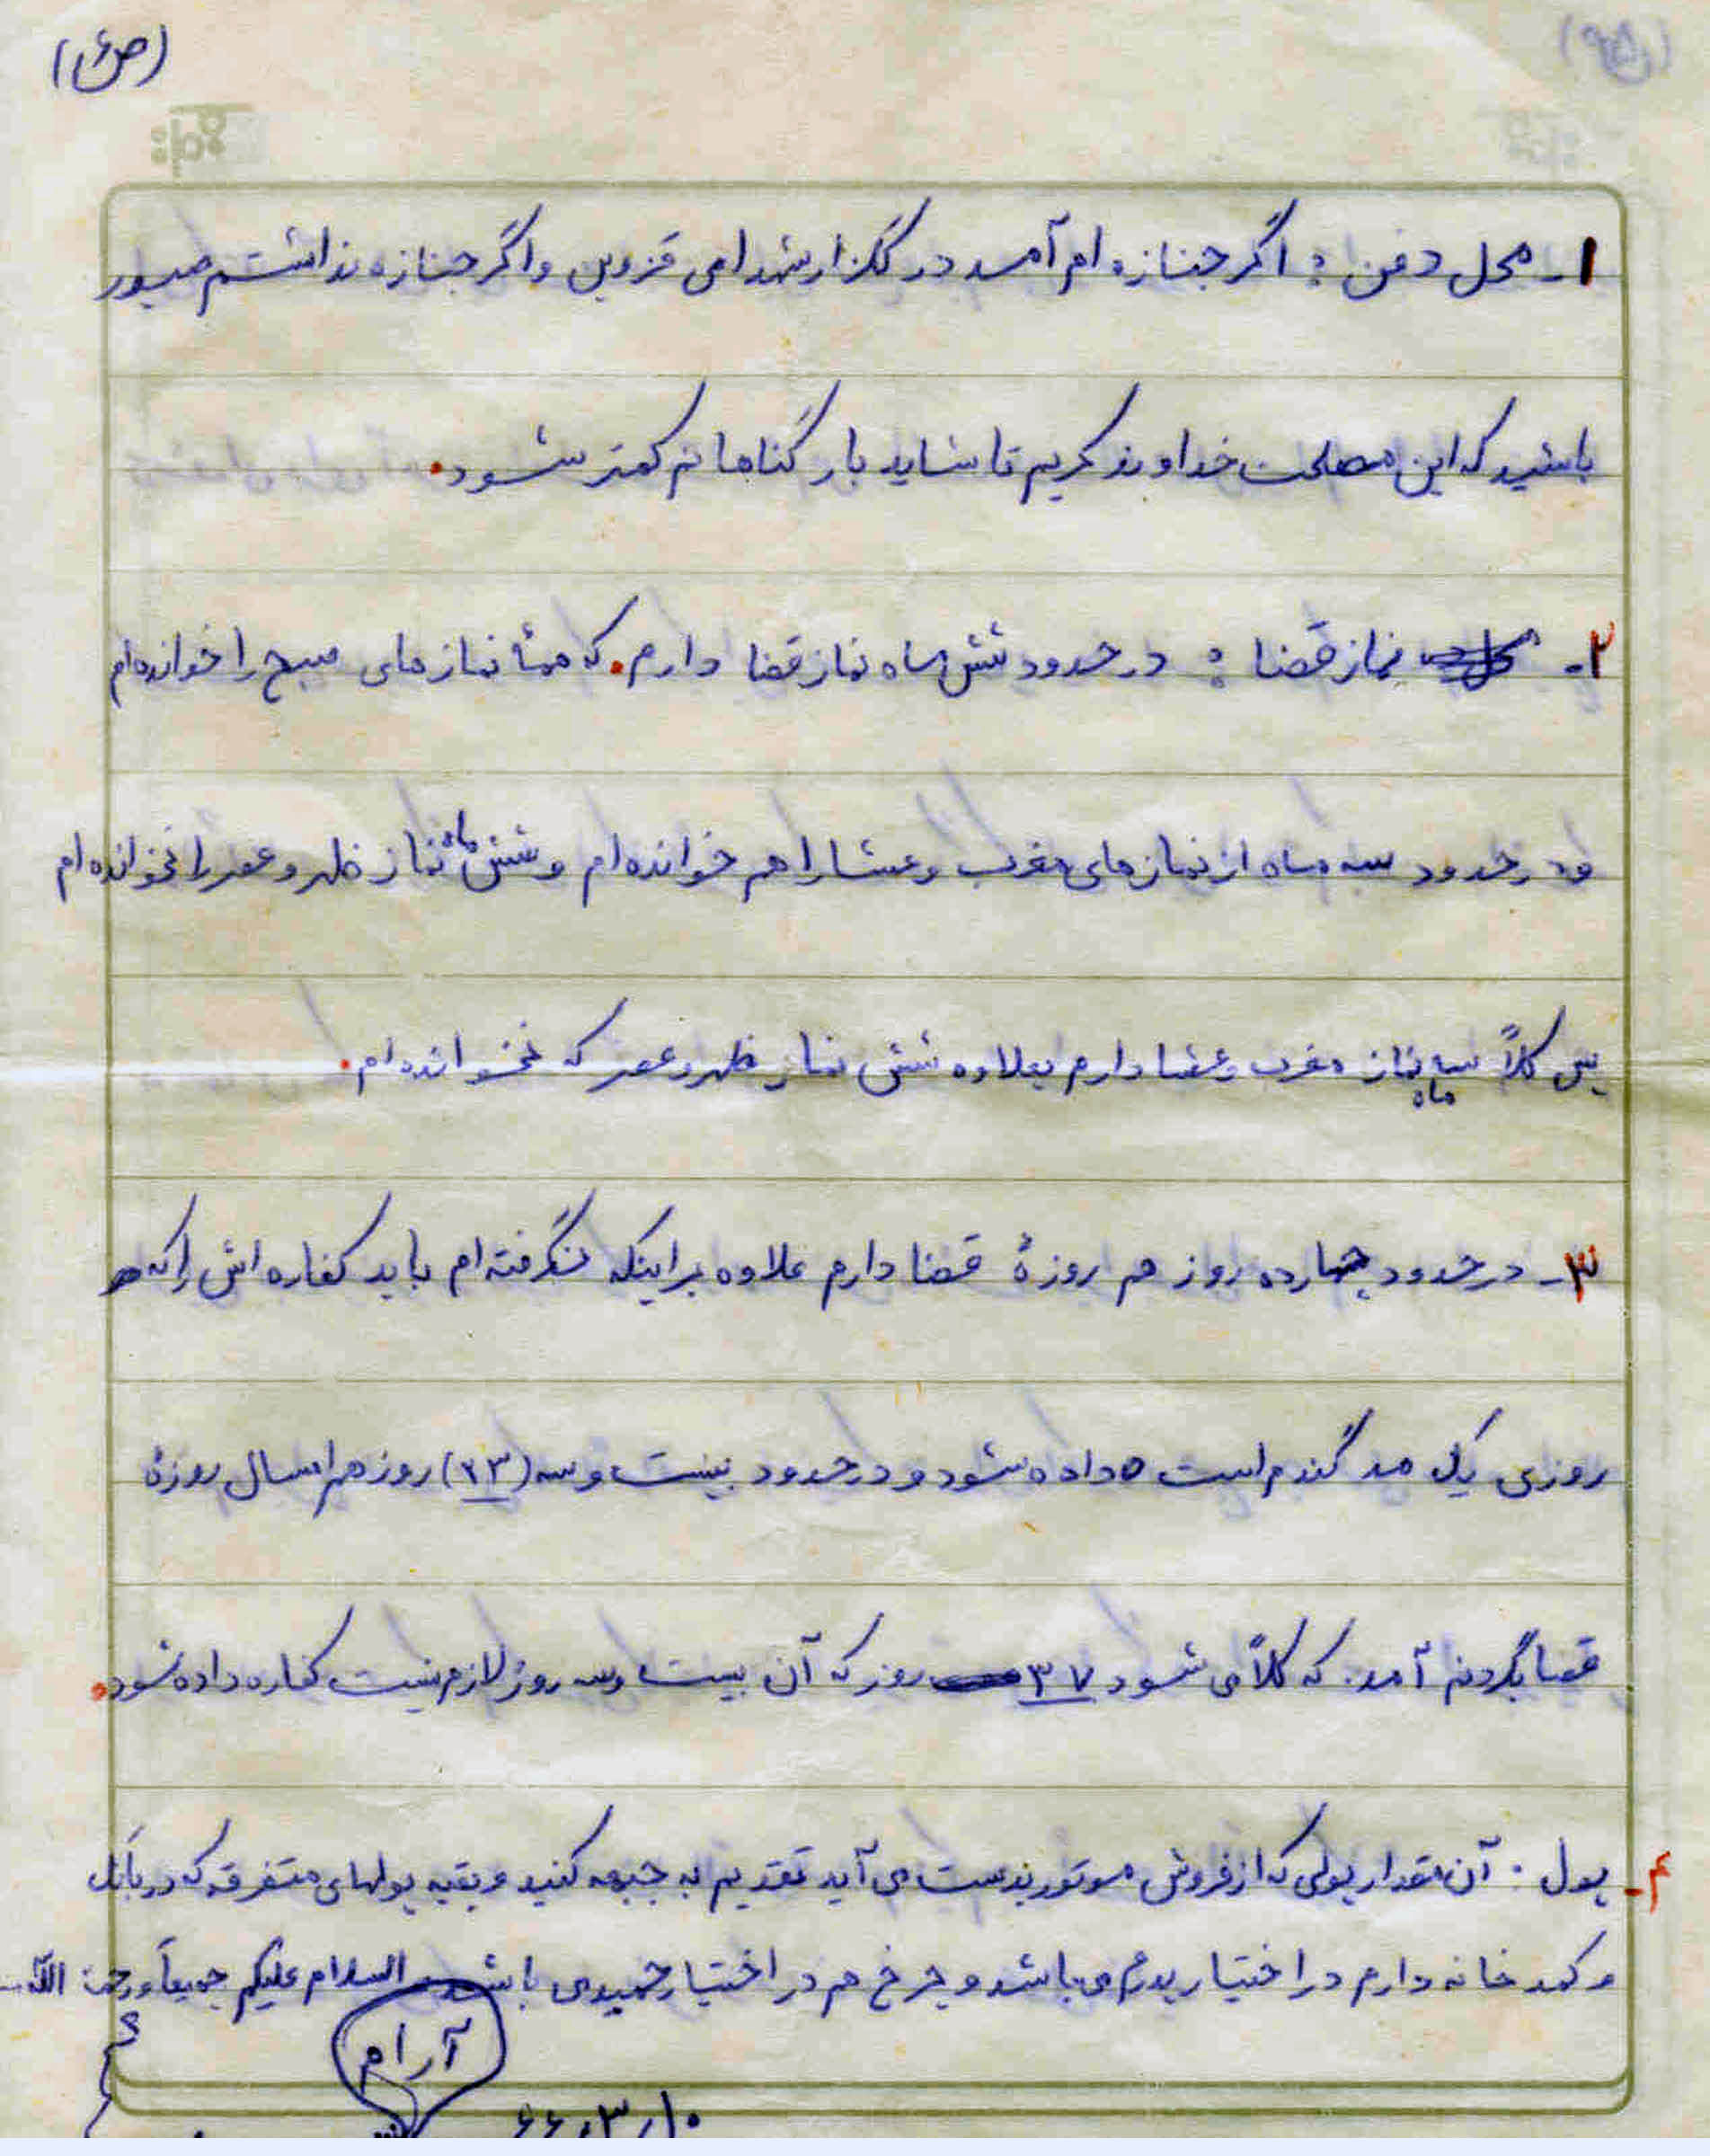 (ص۶)
۱- محل دفن : اگر جنازه ام آمد در گلزار شهدای قزوین و اگر جنازه نداشتم صبور
باشید که این مصلحت خداوند کریم تا شاید بار گناهانم کمتر شود.
۲- نماز قضا : در حدود شش ماه نماز قضا دارم. که همهٔ نمازهای صبح را خوانده‌ام
و در حدود سه ماه از نمازهای مغرب و عشا را هم خوانده ام و شش ماه نماز ظهر و عصر را نخوانده ام
پس کلاً سه ماه نماز مغرب و عشا دارم بعلاوه شش نماز ظهر و عصر که نخوانده ام.
۳- در حدود چهارده روز هم روزهٔ قضا دارم علاوه بر اینکه نگرفته ام باید کفاره اش را که
روزی یک مد گندم است داده شود و در حدود بیست و سه (۲۳) روز هم امسال روزهٔ
قضا بگردنم آمد. که کلاً می شود ۳۷ روز که آن بیست و سه روز لازم نیست کفاره داده شود.
۴- پول : آن مقدار پولی که از فروش موتور بدست می آید تقدیم به جبهه کنید و بقیه پولهای متفرقه که در بانک
و کمد خانه دارم در اختیار پدرم می باشد و چرخ هم در اختیار حمیدی باشد السلام علیکم جمیعاً و رحمت الله
آرام
۶۶،۳،۱۰